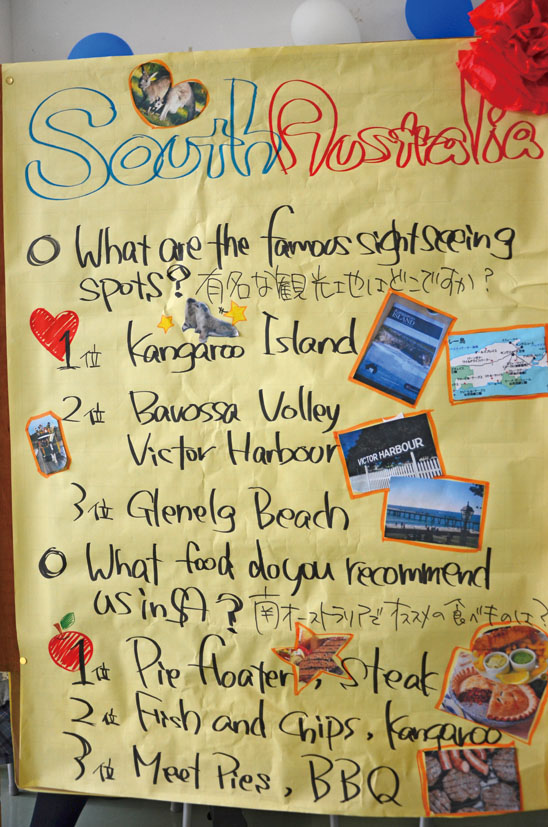 South Australia
O What are the famous sightseeing
spots? 有名な観光地はどこですか?
1位 Kangaroo Island
ISLAND
2位 Barossa Volley
Victor Harbour
VICTOR HARBOUR
3位 Glenelg Beach
O What food do you recommend
us in SA? 南オーストラリアでオススメの食べものは?
1位 Pie floater, steak
2位 Fish and chips, Kangaroo
3位 Meet Pies, BBQ